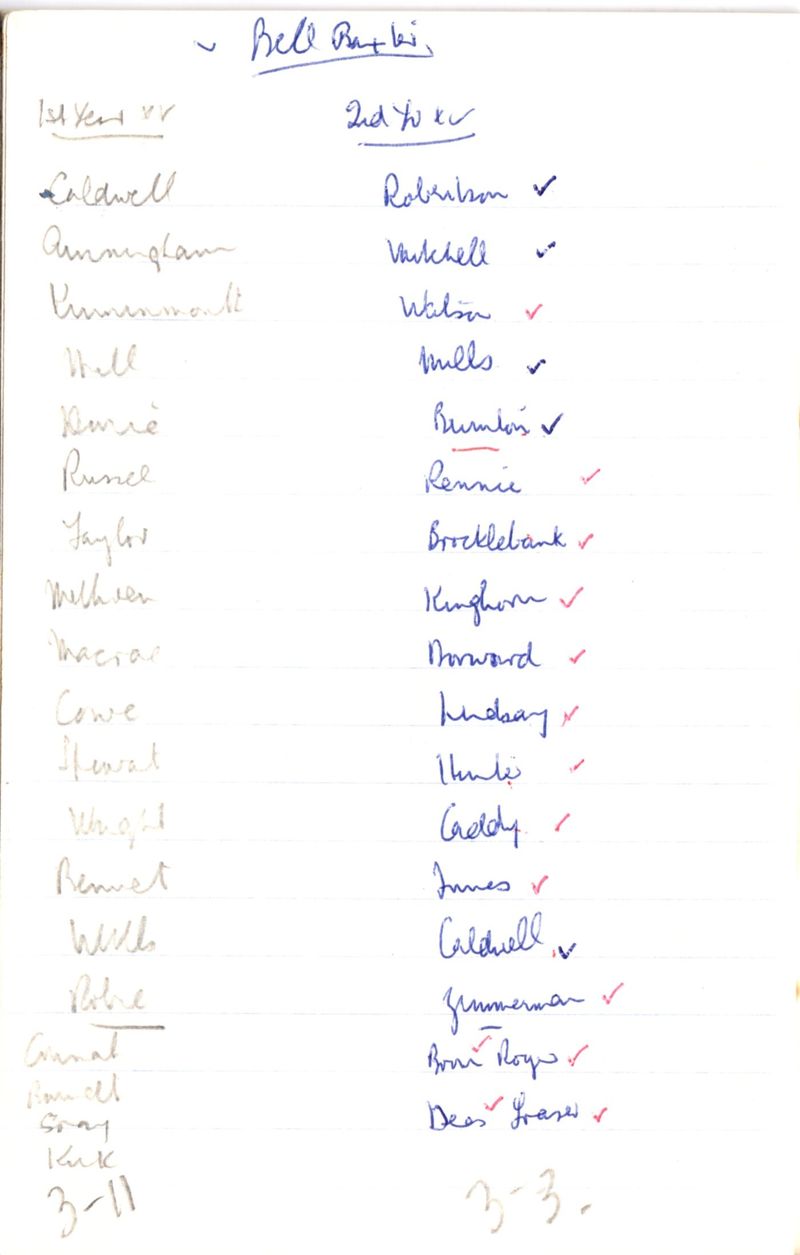 ✓ Bell Baxter.
1st Year XV
2nd Yr XV
Caldwell
Cunningham
Kinninmonth
Hill
Russel
Taylor
Methven
Macrae
Cowe
Stewart
Wright
Bennet
Wills
Robie
Gray
Kirk
3-11
Robertson ✓
Mitchell ✓
Watson ✓
Mills ✓
✓
Rennie ✓
Brocklebank ✓
Kinghorn ✓
Dorward ✓
Lindsay ✓
Hunter ✓
Caddy ✓
Innes ✓
Caldwell ✓
Zimmerman ✓
✓ Roger ✓
Dees ✓ Fraser ✓
3-3.